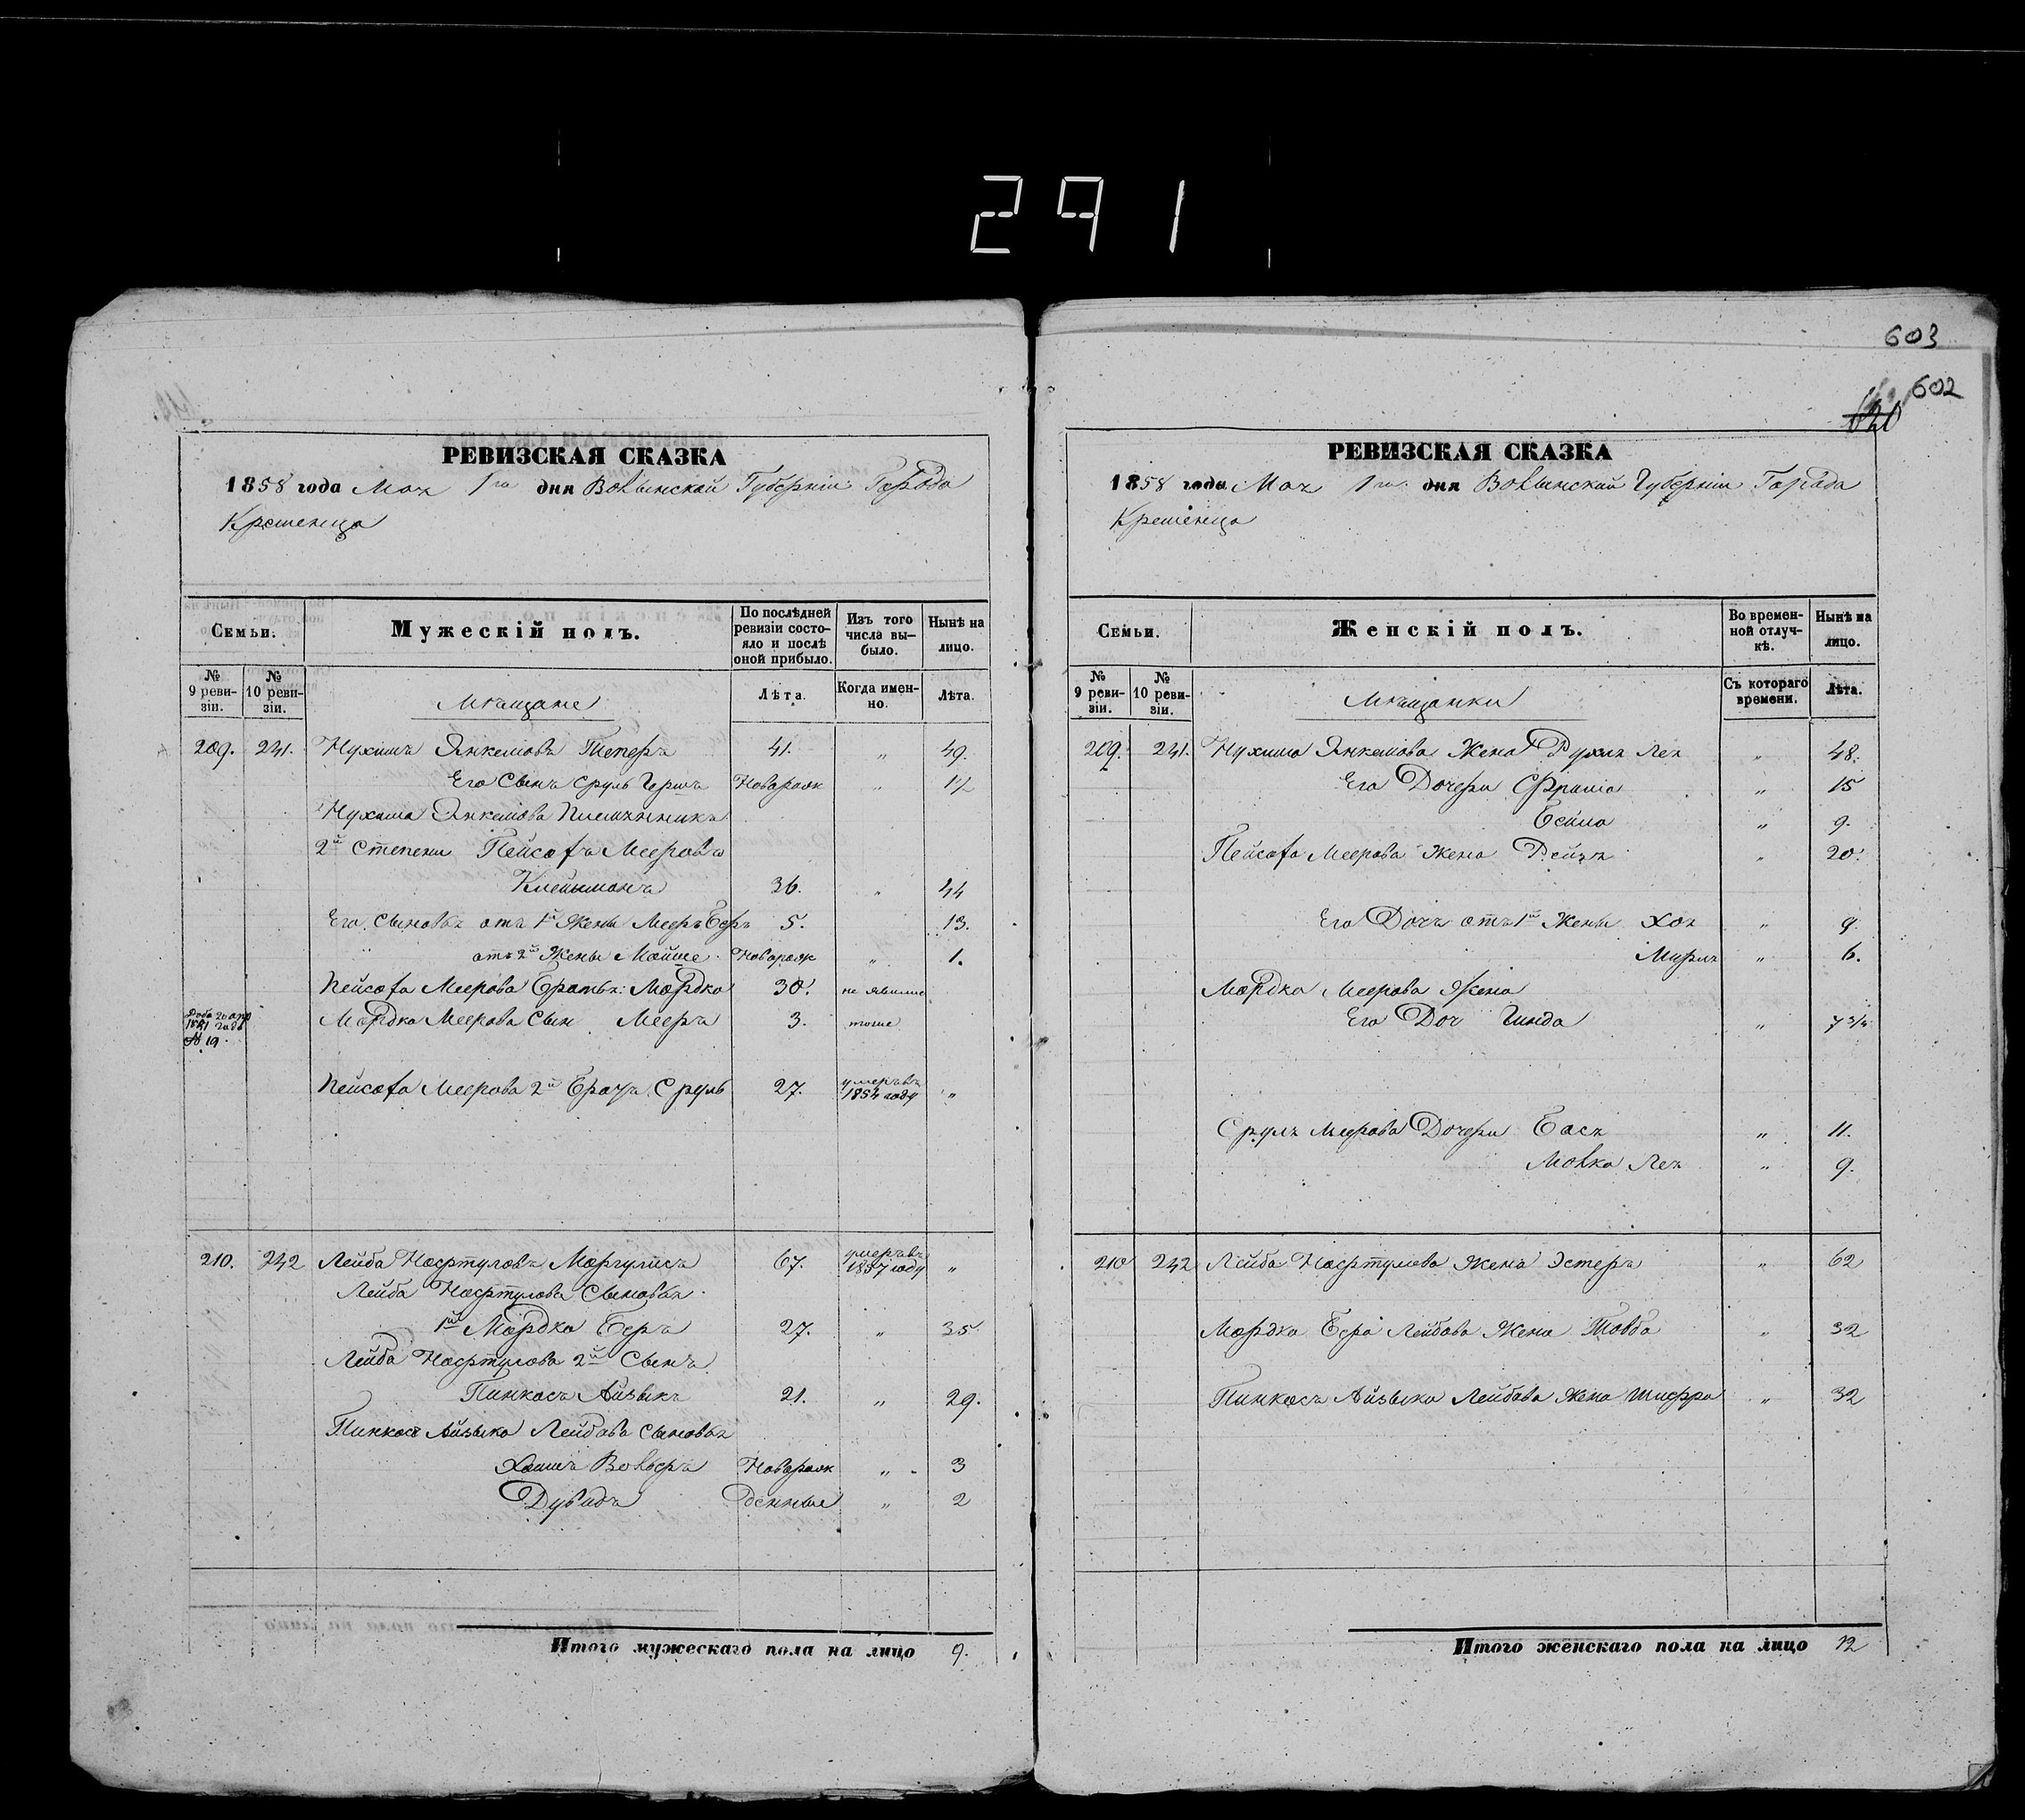 291
603
602
620
РЕВИЗСКАЯ СКАЗКА
1858 года Мая 1го дня Волынской Губерніи Города
Кременца
Семьи.
Мужескій полъ.
По послѣдней ревизіи состояло и послѣ оной прибыло.
Изъ того числа выбыло.
Нынѣ на лицо.
№ 9 ревизіи.
№ 10 ревизіи.
Мѣщане
Лѣта.
Когда именно.
Лѣта.
209. 241. Нухимъ Янкелювъ Теперъ 41. " 49.
Его Сынъ Сруль Гершъ Новорож "
Нухима Янкелюва Племянникъ
2й Степени Пейсахъ Мееровъ
Клейнманъ 36. " 44
Его Сыновья отъ 1й Жены Мееръ Беръ 5. 13.
отъ 2й Жены Мойше Новорож " 1.
Пейсаха Меерова Братья: Мордко 30. не явилис
Мордка Меерова Сын Мееръ 3. тоже
№ 19.
Пейсаха Меерова 2й Братъ Сруль 27. умеръ въ 1854 году "
210. 242 Лейба Нафтуловъ Моргулисъ 67. умеръ въ 1857 году "
Лейба Нафтулова Сыновья
1й Мордко Беръ 27. " 35
Лейба Нафтулова 2й Сынъ
Пинкасъ Айзыкъ 21. " 29.
Пинкас Айзыка Лейбова Сыновья
Хаимъ Вольфъ Новорож " 3
Дувидъ денные " 2
Итого мужескаго пола на лицо 9.
РЕВИЗСКАЯ СКАЗКА
1858 года Мая 1го дня Волынской Губерніи Города
Кременца
Семьи.
Женскій полъ.
Во временной отлучкѣ.
Нынѣ на лицо.
№ 9 ревизіи.
№ 10 ревизіи.
Мѣщанки
Съ котораго времени.
Лѣта.
209. 241. Нухима Янкелюва Жена Рухля Лея " 48.
Его Дочери Фрима " 15
Бейла " 9.
Пейсаха Меерова Жена Рейзя " 20.
Его Дочь отъ 1й Жены Хая " 9
Мирля " 6.
Мордка Меерова Жена
Его Доч Гинда "
Сруля Меерова Дочери Бася " 11.
Малка Лея " 9.
210 242 Лейба Нафтулова Жена Эстеръ " 62
Мордка Бера Лейбова Жена Товба " 32
Пинкасъ Айзыка Лейбова Жена Шифра " 32
Итого женскаго пола на лицо 12